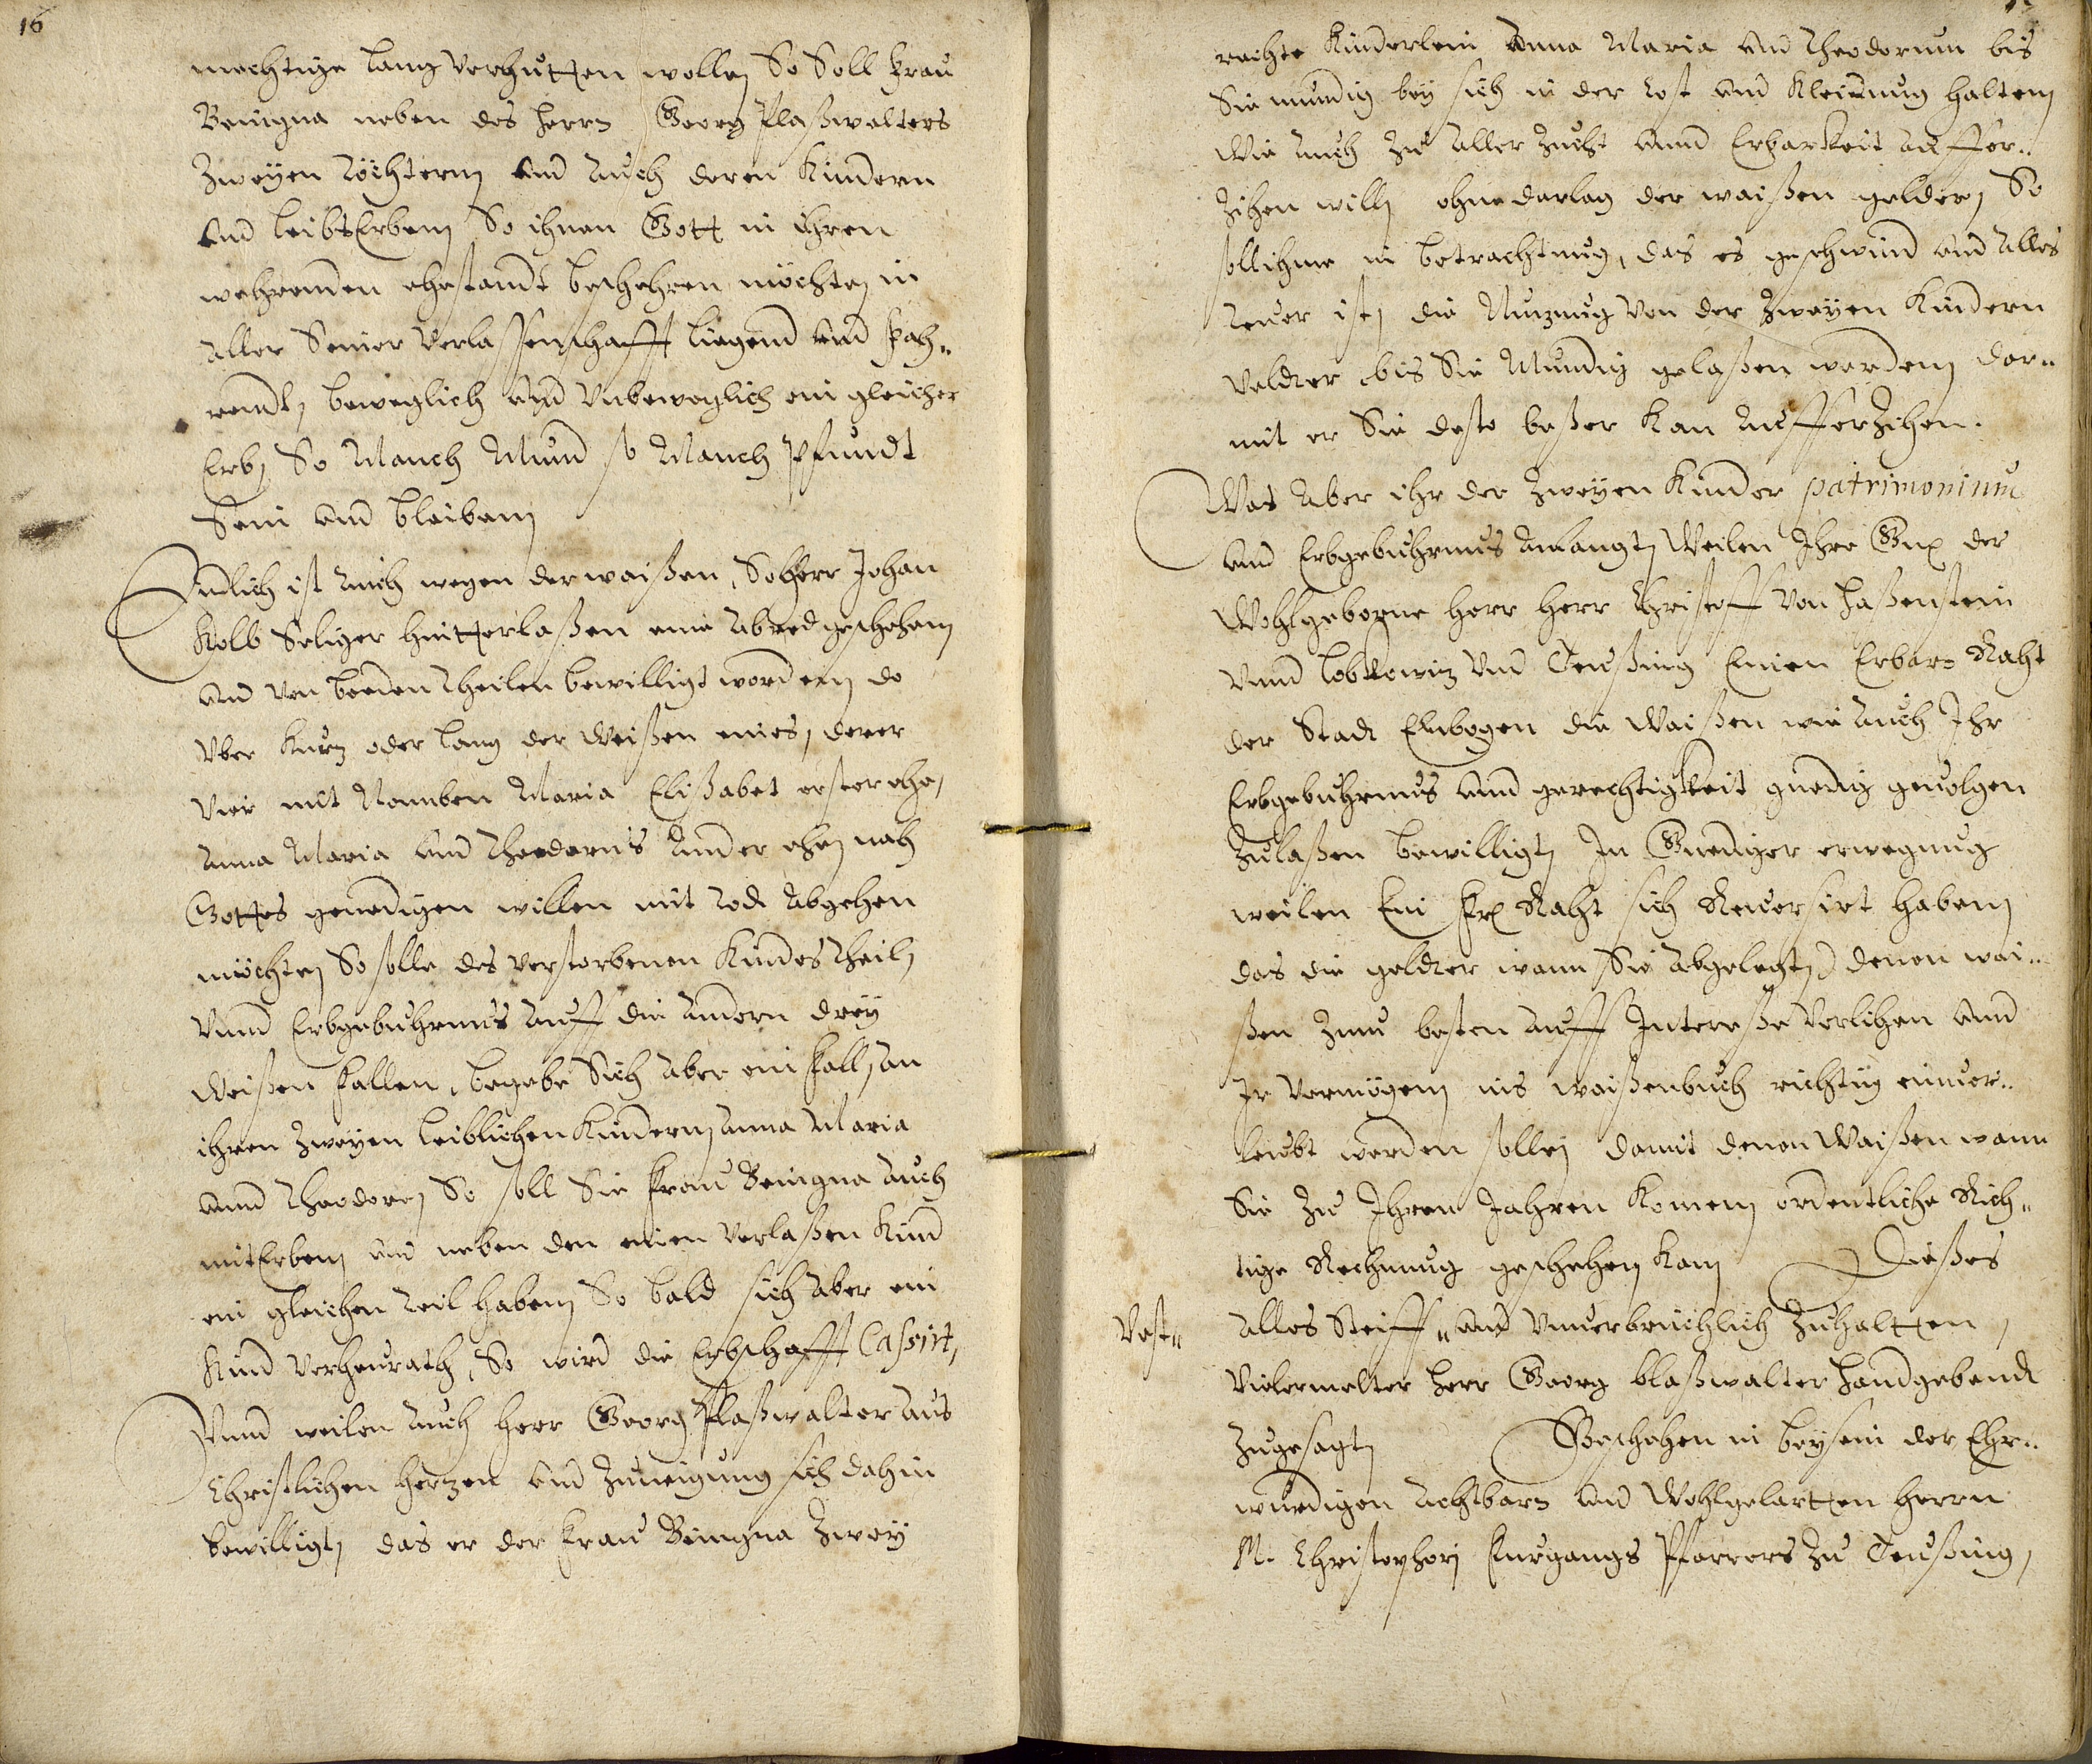 16
mechtige lang verhutten wolle, So Soll Frau
Benigna neben des Herrn Georg Plaßwalters
Zweyen Töchtern, und Auch deren Kindern
und leibsErben, So ihnen Gott in ihren
wehrenden ehestandt beschehren möchte, in
Aller Seiner verlassenschafft liegend und Fah„
rendt, beweglich und Unbeweglich ein gleicher
Erb, So Manch Mund so Manch Pfundt
Sein und bleiben,
Endlich ist Auch wegen der waißen, So Herr Johan
Kolb Seliger hintterlaßen eine Abred geschehen,
und von beeden Theilen bewilligt worden, do
Uber kurz oder lang der Weißen eines, derer
Vier mit Nahmben Maria Elisabet erster ehe,
Anna Maria und Theodorus Ander ehe, nach
Gottes genedigen willen mit Tod Abgehen
möchte, So solle des verstorbenen Kindes Theil,
Unnd Erbgebuhrnus Auff die Andern drey
Weißen Fallen, begebe Sich Aber ein Fall, An
ihren Zweyen leiblichen Kindern, Anna Maria
unnd Theodore, So soll Sie Frau Benigna Auch
mitErben, und neben den einen verlaßen Kind
ein gleichen Teil haben, So bald sich Aber ein
Kind verheurath, So wird die Erbschafft Cassirt,
Unnd weilen Auch Herr Georg Plaßwalter Aus
Christlichen Hertzen und Zuneigung sich dahin
bewilligt, das er der Frau Benigna Zwey
rechte Kinderlein Anna Maria und Theodorum bis
Sie mundig bey sich in der Cost und Kleidung halten,
Wie Auch Zu Aller Zucht unnd Erbarkeit Auffer„
Zihen will, ohne darlag der waißen gelder, So
soll ihme in betrachtung, das es geschwind und Alles
Teuer ist, die Nuzung von der Zweyen Kindern
Velder bis Sie Mundig gelaßen werden, dar„
mit er Sie desto beßer kan Aufferzihen.
Was Aber ihr der Zweyen Kinder patrimonium
und Erbgebuhrnus Anlangt, Weilen Ihre Gn der
Wohlgeborne Herr Herr Christoff von Haßenstein
Unnd lobkowiz Und Teußing Einen Erbarn Raht
der Stadt Elnbogen die Waißen wie Auch Ihr
Erbgebuhrnus unnd gerechtigkeit gnedig geuolgen
Zulaßen bewilligt, In Gnediger erwegung
weilen Ein Raht sich Reuersirt haben,
das die gelder wann Sie Abgelegt, denen wai„
ßen Zum besten Auff Intereße verlihen unnd
Ir vermögen, ins waißenbuch richtig einuer„
leubt werden solle, damit denen Waißen wann
Sie Zu Ihren Jahren Komen, ordentliche Rich„
tige Rechnung geschehen kan, Dießes
Alles Steiff„ und Unuerbrüchlich Zuhaltten,
Vest„
Vielermelter Herr Georg blaßwalter Handgebend
Zugesagt, Geschehen in beysein der Ehr„
wurdigen Achtbarn und Wohlgelartten Herrn
M. Christophori Pfarrers Zu Teußing,